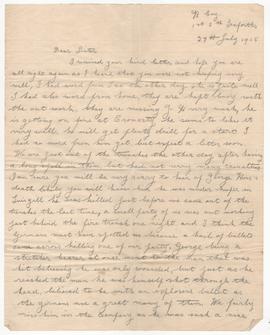 Coy
1st 5th Seaforths
29th July 1915
Dear Sister
I received your kind letter and hope you are
all right again as I hear also you were not keeping very
well, I had word from Joe the other day, he is quite well
I had also word from some, they are kept very busy with
the out work, they are missing J. W. very much, he
is getting on fine at Cromarty. He seems to like it
very well, he will get plenty drill for a start. I
had no word from him yet but expect a letter soon.
We are just out of the trenches the other day after being
a long spell in them but are not very far from the
I am sure you will be very sorry to hear of George Ross's
death likely you will know him he was under keeper in
he was killed just before we came out of the
trenches the last time, a small party of us was out working
just behind the fire trench one night and I think the
germans must have spotted us because a lot of bullets
came across hitting one of our party, George being a
stretcher bearer at once went to the man that was
hit luckily he was only wounded, but just as he
reached the man he was himself shot through the
head, believed to be with an explosive bullet as
the germans use a great many of them. We fairly
miss him in the Company as he was such a nice